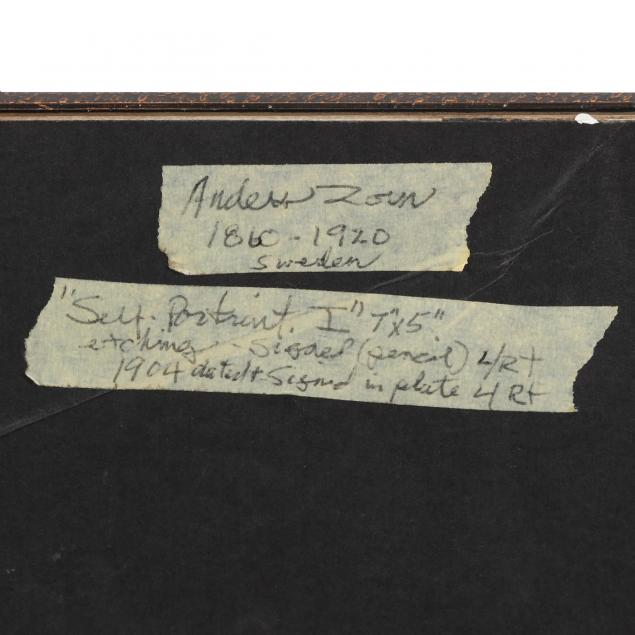 Anders Zorn
1860 - 1920
Sweden
"Self-Portrait I" 7"x5"
etching - Signed (pencil) L/Rt
1904 dated + Signed in plate L Rt